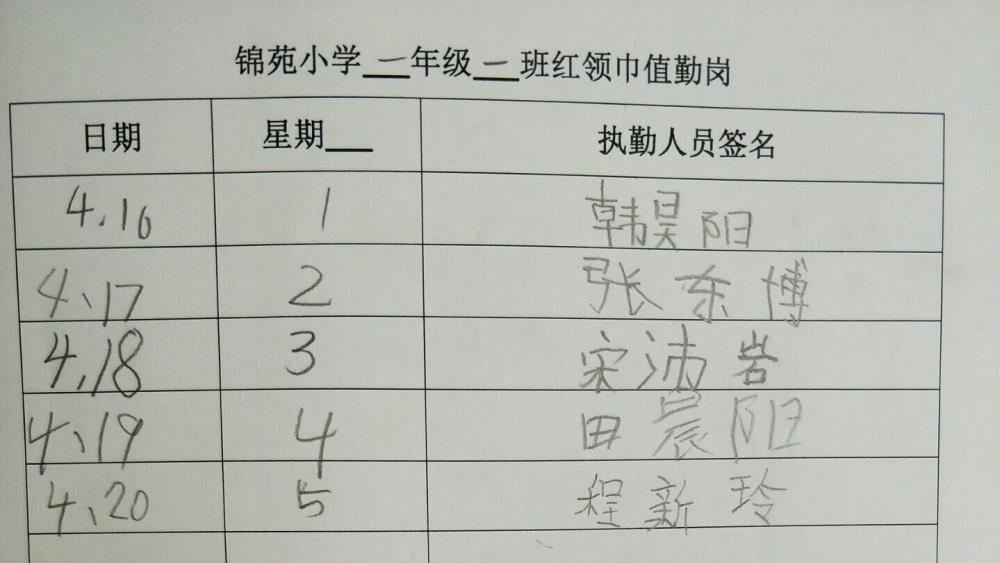 锦苑小学一年级一班红领巾值勤岗
日期 星期 执勤人员签名
4.16 1 韩昊阳
4、17 2 张东博
4.18 3 宋沛岩
4、19 4 田晨阳
4、20 5 程新玲